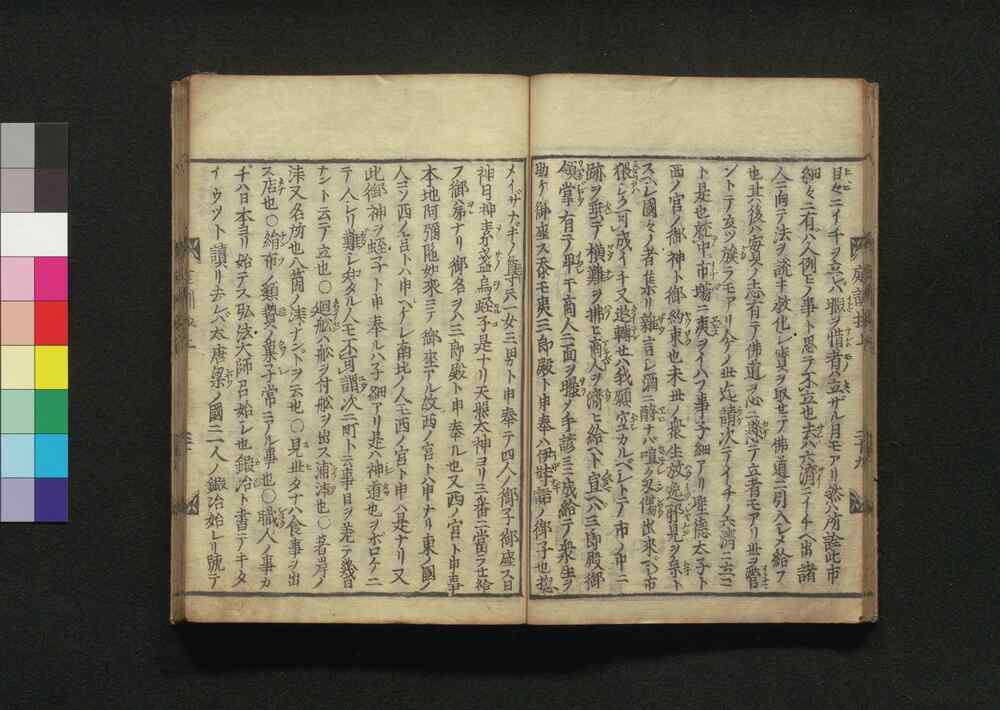 日々ニイチヲ立レバ賑ヲ惜者立サル月モアリ然ハ所詮此市
細々ニ有バ人例ヒノ事ト思テ不立也去バ六濟ニイチヘ出諸
人ニ向テ法ヲ說キ教化シ寶ヲ取セテ佛道ニ引入シメ給フ
也其後ハ實ノ志有テ佛道ヲ心ニ懸テ立者モアリ世ヲ營
ントテ立ツ族ラモアリ今ノ世迄諸次ニテイチノ六濟ニ立コ
ト是也就中市場ニ夷ヲイハフ事子細アリ聖德太子ト
西ノ宮ノ御神ト御約束也末世ノ衆生放逸邪見ヲ宗ト
スベシ國々ノ者集リ雜言シ酒ニ醉ナバ喧久儒出來ベシ市
狠レク可成イチ又退轉セバ我願空カルベシトテ市ノ中ニ
跡ヲ垂テ横難ヲ拂ヒ商人ヲ濟ヒ給ヘト宣ヘバ三郎殿御
領掌有テ平干商人ニ面ヲ曝ク手諺ニ成給テ衆生ヲ
助ケ御座ス忝モ夷三郎殿ト申奉ハ伊弉諾ノ御子也抱
メイザナギノ尊云一女三男ト申奉テ四人ノ御子御座ス日
神月神素盞烏蛭子是ナリ天照太神ヨリ三番ニ當ラせ給
フ御弟ナリ御名ヲハ三郎殿ト申奉ル也又西ノ宮ト申事
本地阿彌陁如來ニテ御座アル故西ノ宮トハ申ナリ東ノ國ノ
人コソ西ノ宮トハ申ベケレ南北ノ人モ西ノ宮ト申ハ是ナリ又
此御神ヲ蛭子ト申奉ルハ子細アリ是ハ神道也ヲボロケニ
テ人シリ難シ知タル人モ不可謂次ニ町ト云事日ヲ差テ幾日
ナント云テ立也〇廻舩ハ舩ヲ付舩ヲ出ス浦湊也〇著岸ノ
津又名所也八箇ノ津ナンドヲ云也〇見世タナハ食事ヲ出
ス店也〇絹布ノ類贄ノ菓子常ニアル事也〇職人ノ事カ
チハ日本ヨリ始テス弘法大師ヨ召始レ也鍛冶ト書テキタ
イウツト讀リ去レバ太唐梁ノ國ニ二人ノ鍛冶始レリ號テ